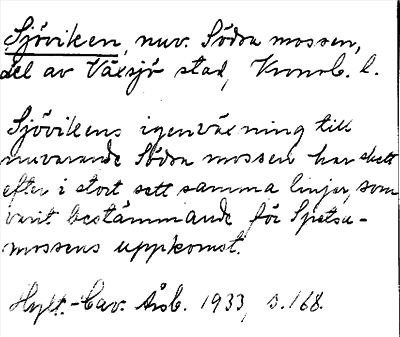 Sjöviken, nuv. Södra mossen,
del av Växsjö stad, Kronob. l.
Sjövikens igenväxning till
nuvarande Södra mossen har skett
efter i stort sett samma linjer, som
varit bestämmande för Spetsa-
mossens uppkomst.
Hylt.-Cav. Årsb. 1933, s. 168.